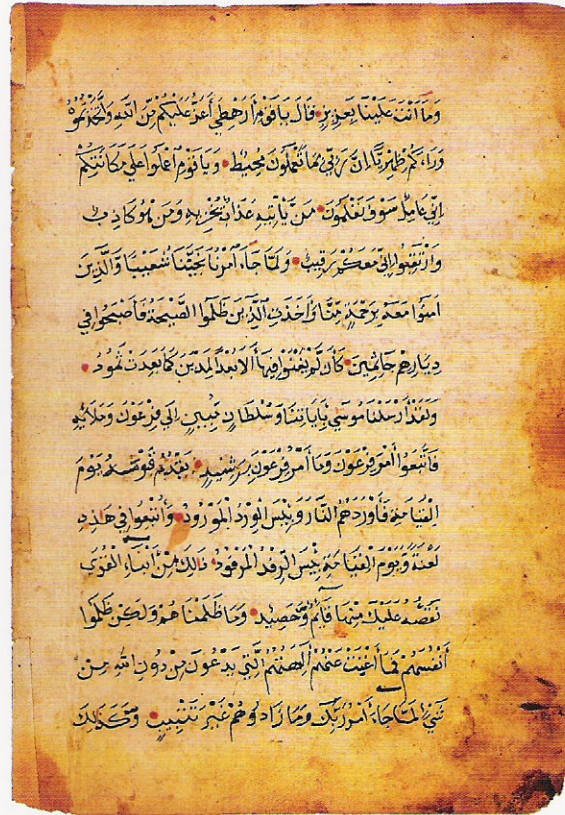 وَمَا أَنْتَ عَلَيْنَا بِعَزِيزٍ قَالَ يَا قَوْمِ أَرَهْطِي أَعَزُّ عَلَيْكُمْ مِنَ اللَّهِ وَاتَّخَذْتُمُوهُ
وَرَاءَكُمْ ظِهْرِيًّا إِنَّ رَبِّي بِمَا تَعْمَلُونَ مُحِيطٌ وَيَا قَوْمِ اعْمَلُوا عَلَى مَكَانَتِكُمْ
إِنِّي عَامِلٌ سَوْفَ تَعْلَمُونَ مَنْ يَأْتِيهِ عَذَابٌ يُخْزِيهِ وَمَنْ هُوَ كَاذِبٌ
وَارْتَقِبُوا إِنِّي مَعَكُمْ رَقِيبٌ وَلَمَّا جَاءَ أَمْرُنَا نَجَّيْنَا شُعَيْبًا وَالَّذِينَ
آمَنُوا مَعَهُ بِرَحْمَةٍ مِنَّا وَأَخَذَتِ الَّذِينَ ظَلَمُوا الصَّيْحَةُ فَأَصْبَحُوا فِي
دِيَارِهِمْ جَاثِمِينَ كَأَنْ لَمْ يَغْنَوْا فِيهَا أَلَا بُعْدًا لِمَدْيَنَ كَمَا بَعِدَتْ ثَمُودُ
وَلَقَدْ أَرْسَلْنَا مُوسَى بِآيَاتِنَا وَسُلْطَانٍ مُبِينٍ إِلَى فِرْعَوْنَ وَمَلَائِهِ
فَاتَّبَعُوا أَمْرَ فِرْعَوْنَ وَمَا أَمْرُ فِرْعَوْنَ بِرَشِيدٍ يَقْدُمُ قَوْمَهُ يَوْمَ
الْقِيَامَةِ فَأَوْرَدَهُمُ النَّارَ وَبِئْسَ الْوِرْدُ الْمَوْرُودُ وَأُتْبِعُوا فِي هَذِهِ
لَعْنَةً وَيَوْمَ الْقِيَامَةِ بِئْسَ الرِّفْدُ الْمَرْفُودُ ذَالِكَ مِنْ أَنْبَاءِ الْقُرَى
نَقُصُّهُ عَلَيْكَ مِنْهَا قَائِمٌ وَحَصِيدٌ وَمَا ظَلَمْنَاهُمْ وَلَكِنْ ظَلَمُوا
أَنْفُسَهُمْ فَمَا أَغْنَتْ عَنْهُمْ آلِهَتُهُمُ الَّتِي يَدْعُونَ مِنْ دُونِ اللَّهِ مِنْ
شَيْءٍ لَمَّا جَاءَ أَمْرُ رَبِّكَ وَمَا زَادُوهُمْ غَيْرَ تَتْبِيبٍ وَكَذَلِكَ